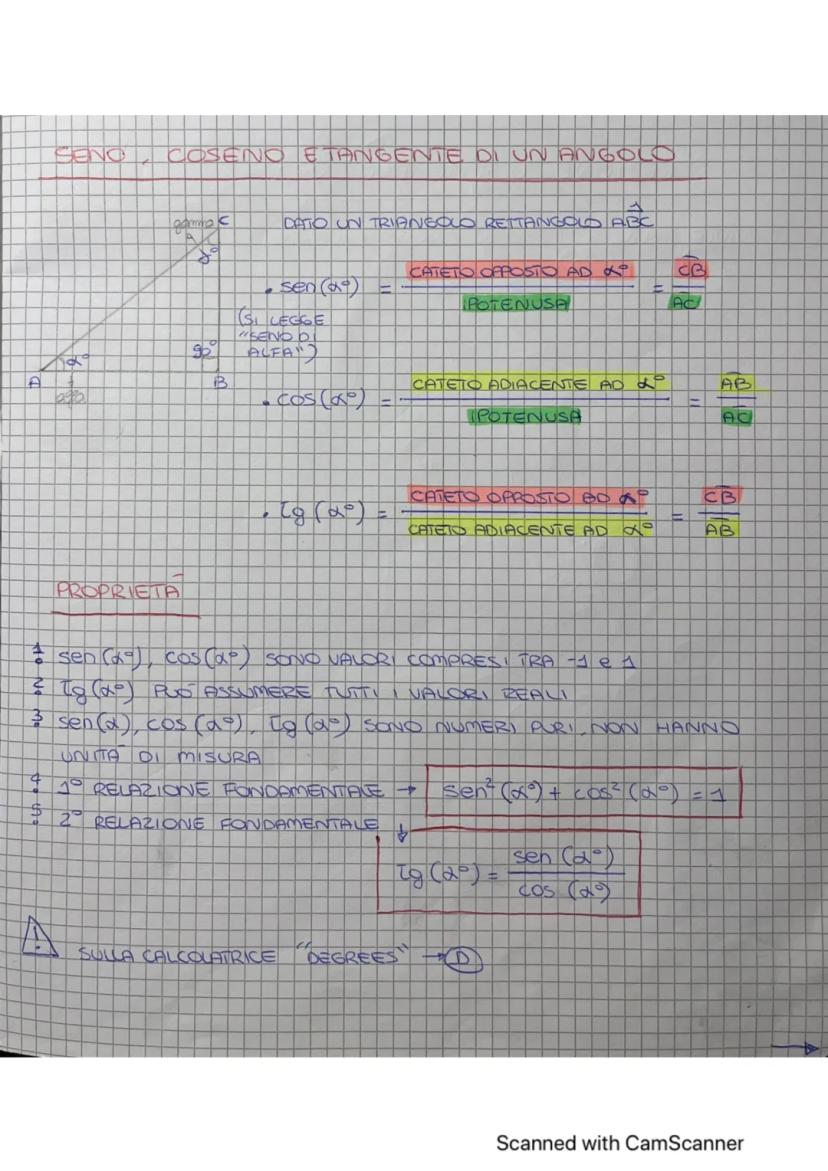 SENO, COSENO E TANGENTE DI UN ANGOLO
gamma C
DATO UN TRIANGOLO RETTANGOLO ABC
γ°
. sen (α°) = CATETO OPPOSTO AD α° / IPOTENUSA = CB / AC
(SI LEGGE
"SENO DI
ALFA")
90°
α°
A
B
. cos (α°) = CATETO ADIACENTE AD α° / IPOTENUSA = AB / AC
. tg (α°) = CATETO OPPOSTO AD α° / CATETO ADIACENTE AD α° = CB / AB
PROPRIETÀ
1. sen (α°), cos (α°) SONO VALORI COMPRESI TRA -1 e 1
2. tg (α°) PUÒ ASSUMERE TUTTI I VALORI REALI
3. sen (α), cos (α°), tg (α°) SONO NUMERI PURI, NON HANNO
UNITÀ DI MISURA
4. 1° RELAZIONE FONDAMENTALE → sen² (α°) + cos² (α°) = 1
5. 2° RELAZIONE FONDAMENTALE ↓
tg (α°) = sen (α°) / cos (α°)
! SULLA CALCOLATRICE "DEGREES" → D
Scanned with CamScanner